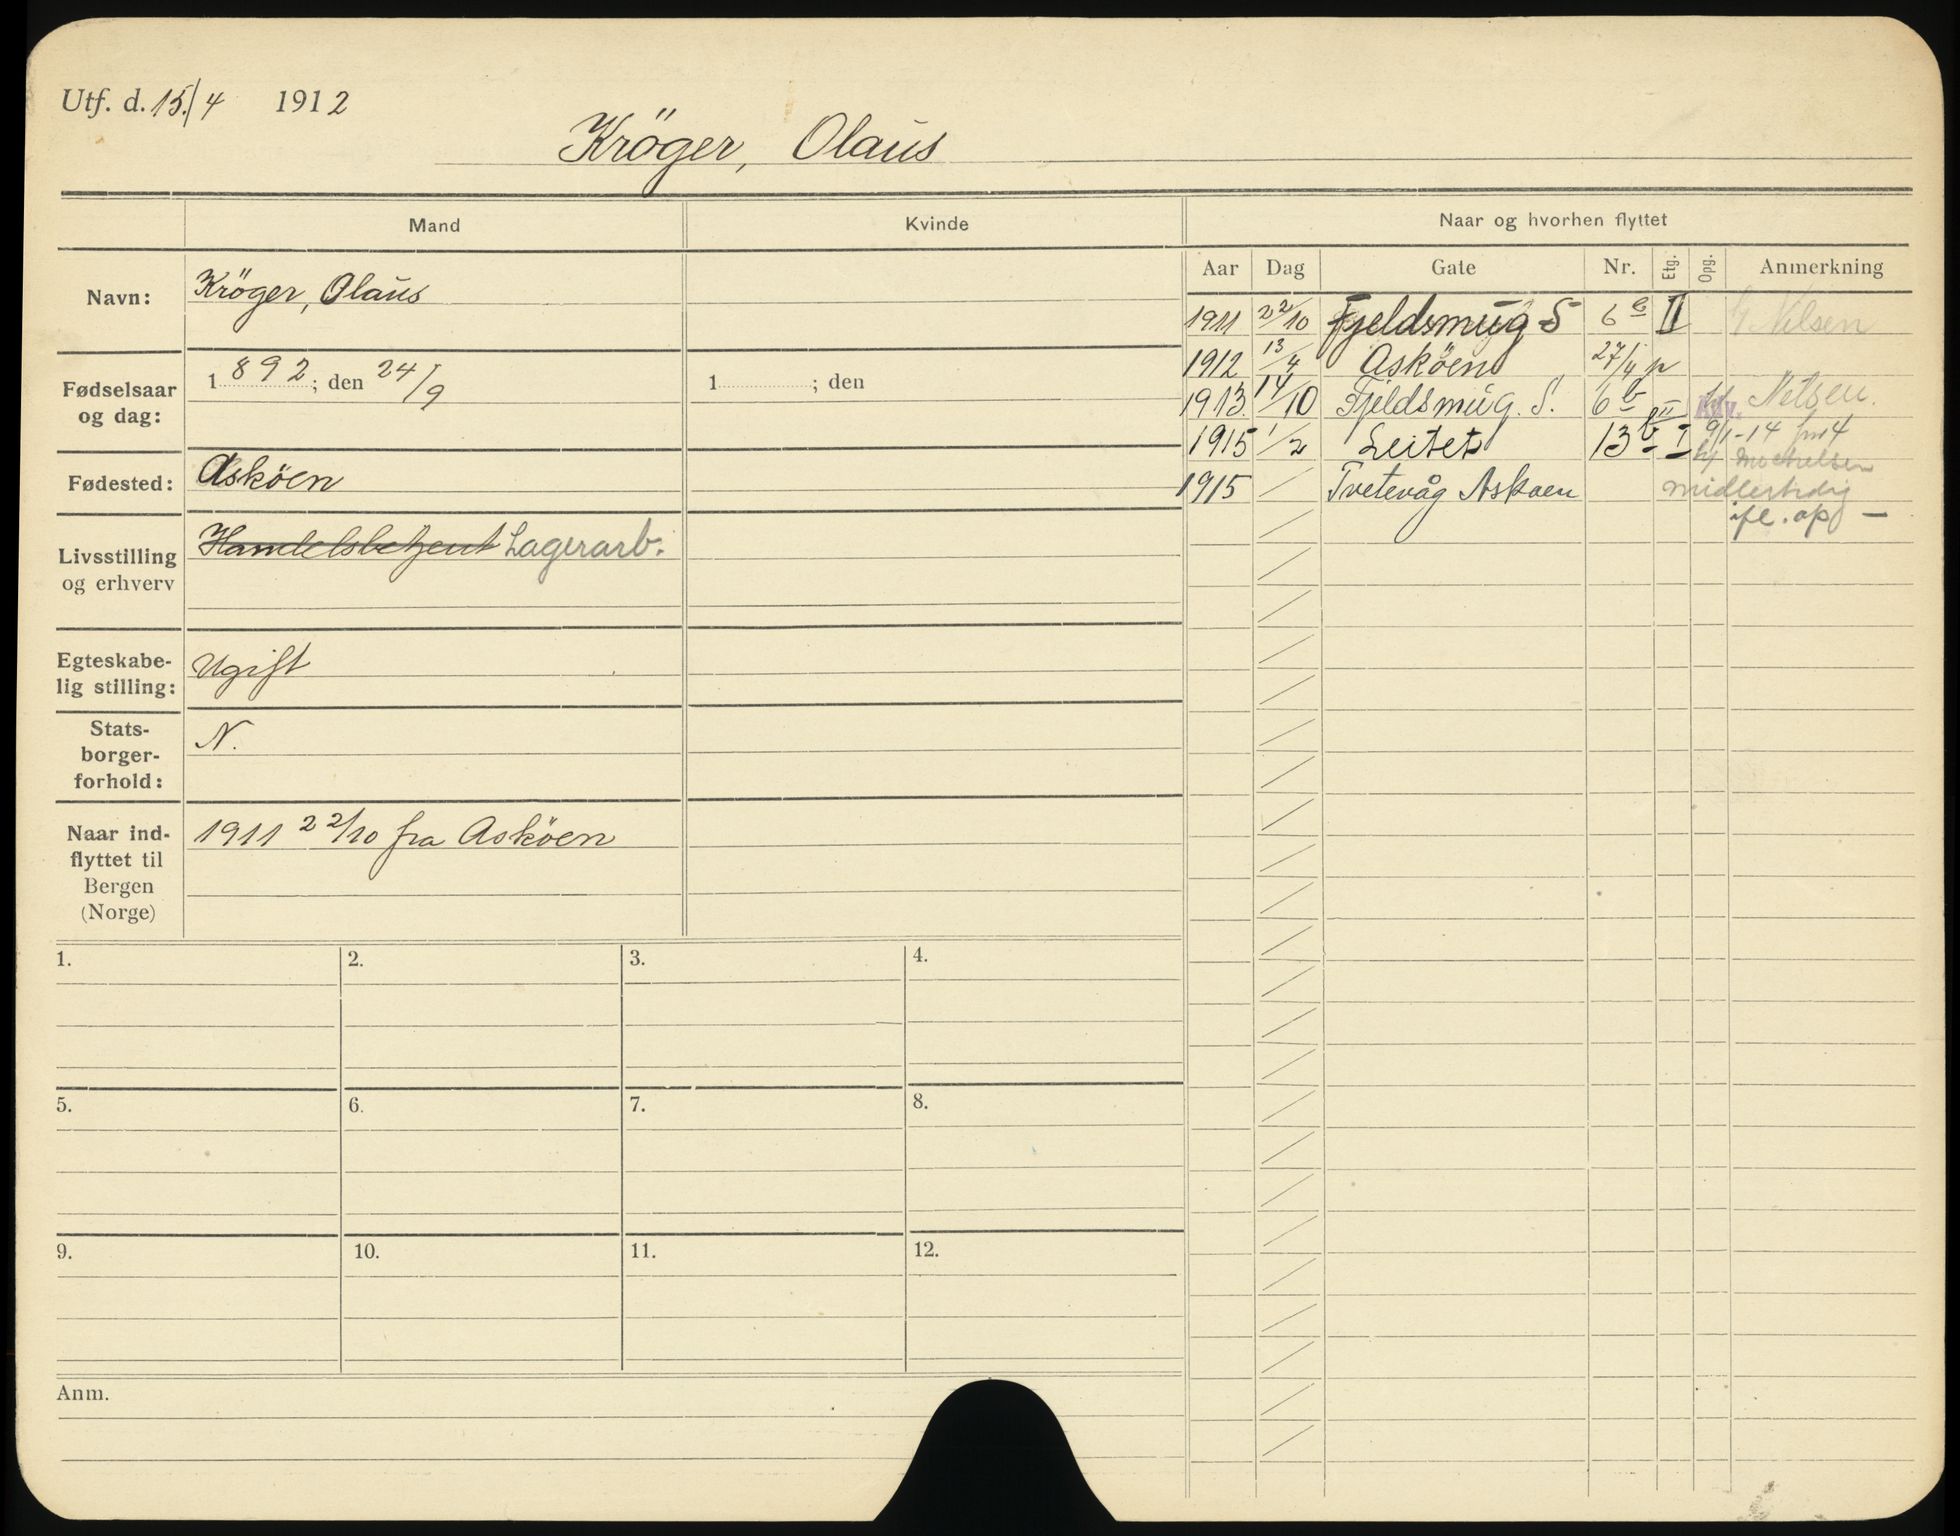 Utf. d. 15./4 1912
Kröger, Olaus
Mand
Kvinde
Naar og hvorhen flyttet
Aar Dag Gate Nr. Etg. Opg. Anmerkning
Navn: Kröger, Olaus
1911 22/10 Fjeldsmug S 6 II Nilsen
1912 13/4 Asköen 27/4
Fødselsaar og dag: 1892; den 24/9
1 ; den
1913 14/10 Fjeldsmug. S. 6 b II Nilsen.
9/1-14
1915 1/2 Leitet 13 b I
Fødested: Asköen
1915 Tvetevåg Askøen midlertidig
ifl. op
Livsstilling og erhverv Handelsbetjent Lagerarb.
Egteskabe-
lig stilling: Ugift
Stats-
borger-
forhold: N.
Naar ind-
flyttet til
Bergen
(Norge)
1911 22/10 fra Asköen
1. 2. 3. 4.
5. 6. 7. 8.
9. 10. 11. 12.
Anm.